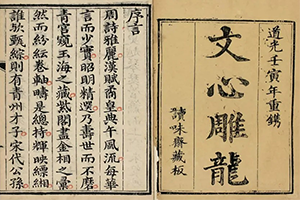 道光壬寅年重鐫
文心雕龍
讀味齋藏板
序言
周詩雅麗漢賦高皇典午風流每華
言而少實昭明精選乃壽世而不磨
青宮窺玉海之藏紫閣盡金相之彙
然而紛紜卷軸疇是總持輝映縹緗
誰欽甄綜則有青州才子宋代公孫